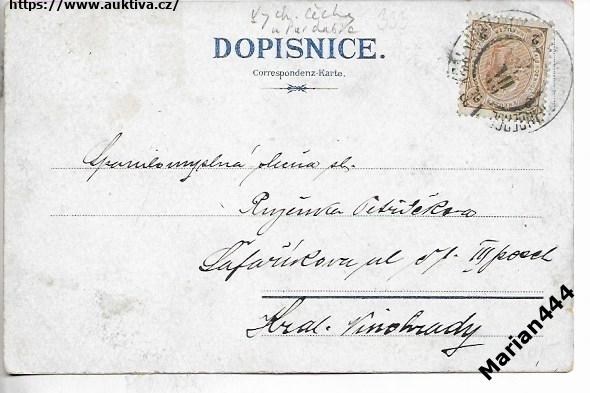 https://www.auktiva.cz/
Vých. Čechy
u Pardubic
333
DOPISNICE.
Correspondenz-Karte.
2
Spanilomyslná slečna sl.
Růženka Petříčkova
Šafaříkova ul III posch
Král. Vinohrady
Marian444